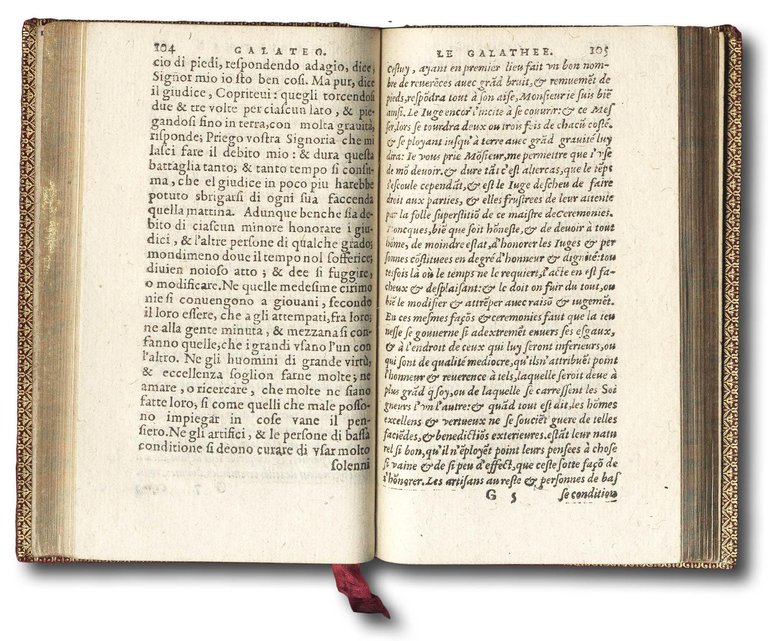 104 GALATEO.
cio di piedi, respondendo adagio, dice,
Signor mio io sto ben cosi. Ma pur, dice
il giudice, Copriteui: quegli torcendosi
due & tre volte per ciascun lato, & pie-
gandosi fino in terra, con molta grauità,
risponde; Priego vostra Signoria che mi
lasci fare il debito mio: & dura questa
battaglia tanto; & tanto tempo si consu-
ma, che el giudice in poco piu harebbe
potuto sbrigarsi di ogni sua faccenda
quella mattina. Adunque benche sia de-
bito di ciascun minore honorare i giu-
dici, & l'altre persone di qualche grado;
mondimeno doue il tempo nol sofferice;
diuien noioso atto; & dee si fuggire,
o modificare. Ne quelle medesime cirimo
nie si conuengono a giouani, secondo
il loro essere, che a gli attempati, fra loro;
ne alla gente minuta, & mezzana si con-
fanno quelle, che i grandi vsano l'un con
l'altro. Ne gli huomini di grande virtù,
& eccellenza soglion farne molte; ne
amare, o ricercare, che molte ne siano
fatte loro, si come quelli che male posso-
no impiegar in cose vane il pen-
siero. Ne gli artifici, & le persone di bassa
conditione si deono curare di vsar molto
solenni
LE GALATHEE. 105
Cestuy, ayant en premier lieu fait vn bon nom-
bre de reuerēces auec grād bruit, & remuemēt de
pieds, respōdra tout à son aise, Monsieur ie suis biē
ainsi. Le Iuge encor l'incite à se couurir: & ce Mes
ser, lors se tourdra deux ou trois fois de chacū costé,
& se ployant iusqu'à terre auec grād grauité luy
dira: Ie vous prie Mōsieur, me permettre que i'vse
de mō deuoir, & dure tāt c'est altercas, que le tēps
s'escoule cependāt, & est le Iuge descheu de faire
droit aux parties, & elles frustrees de leur attente
par la folle superstitiō de ce maistre de ceremonies.
Doncques, biē que soit hōneste, & de deuoir à tout
hōme, de moindre estat, d'honorer les Iuges & per
sonnes cōstituees en degré d'honneur & dignité: tou
tesfois là où le temps ne le requiert, l'acte en est fa-
cheux & desplaisant: & le doit on fuir du tout, ou
biē le modifier & attrēper auec raisō & iugemēt.
En ces mesmes façōs & ceremonies faut que la ieu
nesse se gouuerne si adextremēt enuers ses esgaux,
& à l'endroit de ceux qui luy seront inferieurs, ou
qui sont de qualité mediocre, qu'ils n'attribuēt point
l'honneur & reuerence à tels, laquelle seroit deuë à
plus grād q̄ soy, ou de laquelle se carressent les Sei
gneurs l'vn l'autre: & quād tout est dit, les hōmes
excellens & vertueux ne se souciēt guere de telles
faciēdes, & benedictiōs exterieures. estāt leur natu
rel si bon, qu'il n'ēployēt point leurs pensees à chose
si vaine & de si peu d'effect, que ceste sotte façō de
s'hōnorer. Les artisans au reste & personnes de bas
G 5 se condition